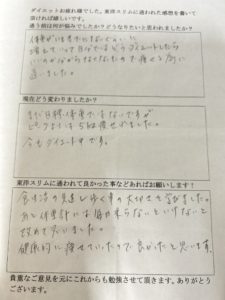 ダイエットお疲れ様でした。東洋スリムに通われた感想を書いて
頂ければ嬉しいです。
通う前は何が悩みでしたか？どうなりたいと思われましたか？
体重が
増えていって自分ではどうダイエットしたら
いいのかがわからなくなったので痩せる為に
通いました。
現在どう変わりましたか？
まだ目標体重ではないですが
ピークより
痩せました。
今もダイエット中です。
東洋スリムに通われて良かった事などあればお願いします！
食生活の見直しや歩く事の大切さを学びました。
あと体重計には毎日乗らないといけないと
改めて思いました。
健康的に痩せていったので良かったと思います。
貴重なご意見を元にこれからも勉強させて頂きます。ありがとう
ございます。